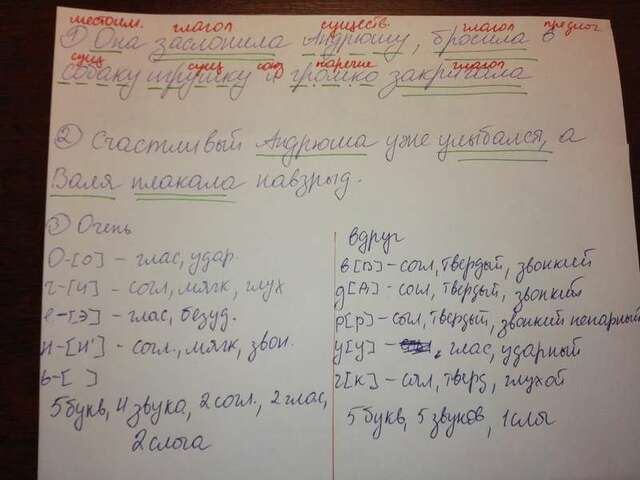 местоим. глагол существ. глагол предлог
1) Она заслонила Андрюшу, бросила в
сущ сущ союз наречие глагол
собаку игрушку и громко закричала
2) Счастливый Андрюша уже улыбался, а
Валя плакала навзрыд.
3) Очень
О-[о] – глас, удар.
ч-[ч] – согл, мягк, глух
е-[э] – глас, безуд.
н-[н'] – согл., мягк, звон.
ь-[ ]
5 букв, 4 звука, 2 согл., 2 глас,
2 слога
вдруг
в[в] – согл, твердый, звонкий
д[д] – согл, твердый, звонкий
р[р] – согл, твердый, звонкий непарный
у[у] – глас, ударный
г[к] – согл, тверд, глухой
5 букв, 5 звуков, 1 слог